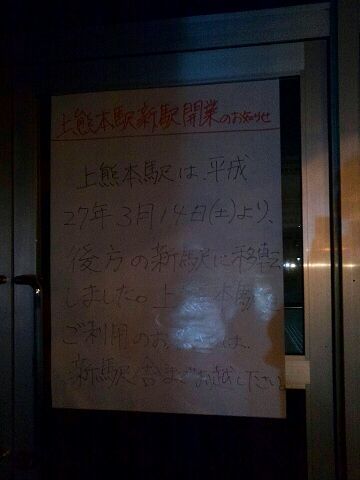 上熊本駅新駅開業のお知らせ
上熊本駅は、平成
27年3月14日(土)より、
後方の新駅に移転
しました。上熊本駅を
ご利用のお は、
新駅舎までお越し下さい